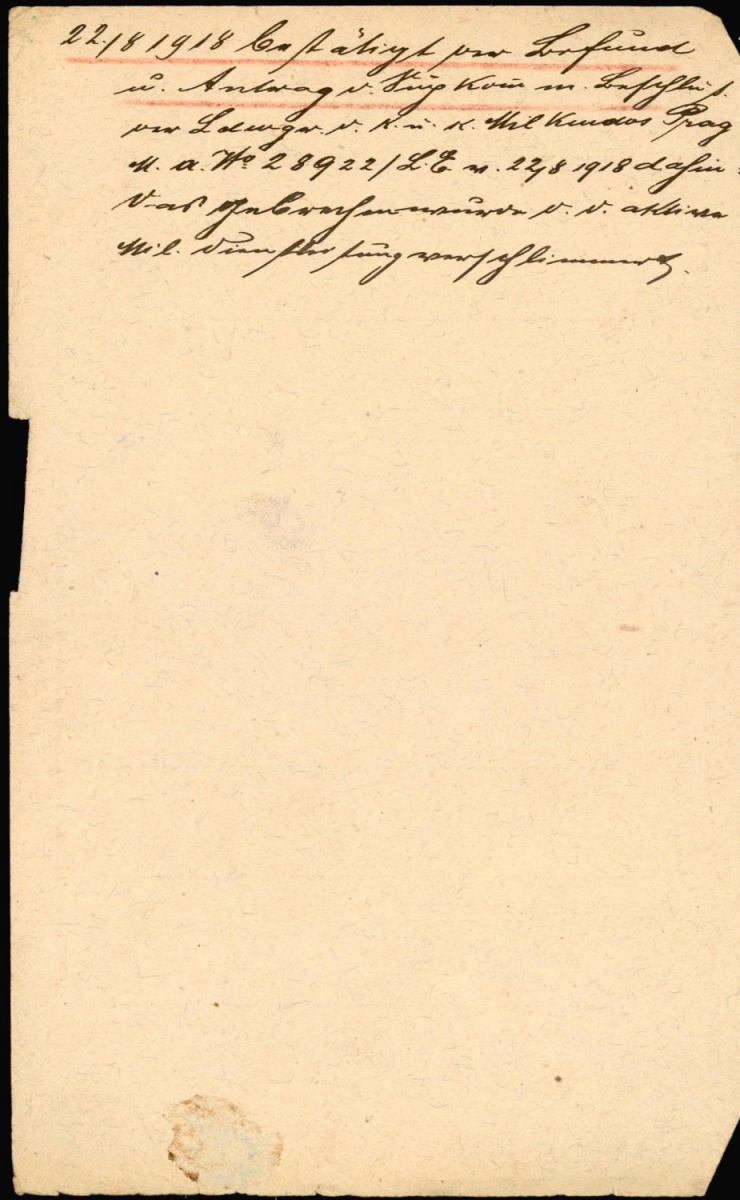 22./8 1918 bestätigt der Befund
u. Antrag d. Sup Kom m. Beschluß.
der Ldwgr. d. k. u. k. Mil Kmdos Prag
M. a. No 28922/L.E v. 22/8 1918 dahin:
Das Gebrechen wurde d. d. aktive
Mil. Dienstleistung verschlimmert.